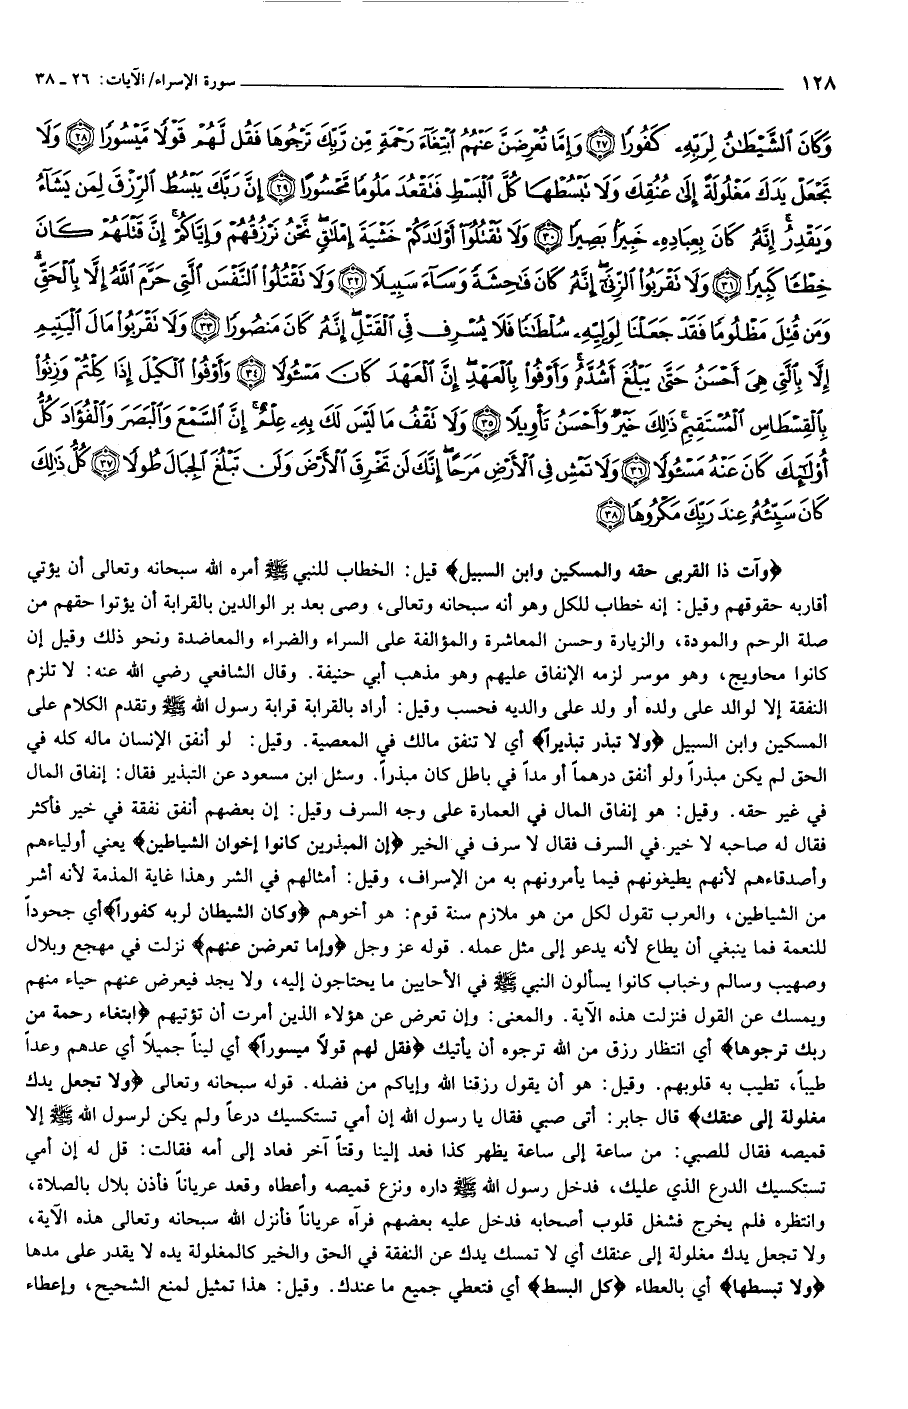 ١٢٨ سورة الإسراء/ الآيات: ٢٦ ـ ٣٨
وَكَانَ ٱلشَّيْطَٰنُ لِرَبِّهِۦ كَفُورًا ﴿٢٧﴾ وَإِمَّا تُعْرِضَنَّ عَنْهُمُ ٱبْتِغَآءَ رَحْمَةٍ مِّن رَّبِّكَ تَرْجُوهَا فَقُل لَّهُمْ قَوْلًا مَّيْسُورًا ﴿٢٨﴾ وَلَا
تَجْعَلْ يَدَكَ مَغْلُولَةً إِلَىٰ عُنُقِكَ وَلَا تَبْسُطْهَا كُلَّ ٱلْبَسْطِ فَتَقْعُدَ مَلُومًا مَّحْسُورًا ﴿٢٩﴾ إِنَّ رَبَّكَ يَبْسُطُ ٱلرِّزْقَ لِمَن يَشَآءُ
وَيَقْدِرُ ۚ إِنَّهُۥ كَانَ بِعِبَادِهِۦ خَبِيرًۢا بَصِيرًا ﴿٣٠﴾ وَلَا تَقْتُلُوٓا۟ أَوْلَٰدَكُمْ خَشْيَةَ إِمْلَٰقٍ ۖ نَّحْنُ نَرْزُقُهُمْ وَإِيَّاكُمْ ۚ إِنَّ قَتْلَهُمْ كَانَ
خِطْـًٔا كَبِيرًا ﴿٣١﴾ وَلَا تَقْرَبُوا۟ ٱلزِّنَىٰٓ ۖ إِنَّهُۥ كَانَ فَٰحِشَةً وَسَآءَ سَبِيلًا ﴿٣٢﴾ وَلَا تَقْتُلُوا۟ ٱلنَّفْسَ ٱلَّتِى حَرَّمَ ٱللَّهُ إِلَّا بِٱلْحَقِّ ۗ
وَمَن قُتِلَ مَظْلُومًا فَقَدْ جَعَلْنَا لِوَلِيِّهِۦ سُلْطَٰنًا فَلَا يُسْرِف فِّى ٱلْقَتْلِ ۖ إِنَّهُۥ كَانَ مَنصُورًا ﴿٣٣﴾ وَلَا تَقْرَبُوا۟ مَالَ ٱلْيَتِيمِ
إِلَّا بِٱلَّتِى هِىَ أَحْسَنُ حَتَّىٰ يَبْلُغَ أَشُدَّهُۥ ۚ وَأَوْفُوا۟ بِٱلْعَهْدِ ۖ إِنَّ ٱلْعَهْدَ كَانَ مَسْـُٔولًا ﴿٣٤﴾ وَأَوْفُوا۟ ٱلْكَيْلَ إِذَا كِلْتُمْ وَزِنُوا۟
بِٱلْقِسْطَاسِ ٱلْمُسْتَقِيمِ ۚ ذَٰلِكَ خَيْرٌ وَأَحْسَنُ تَأْوِيلًا ﴿٣٥﴾ وَلَا تَقْفُ مَا لَيْسَ لَكَ بِهِۦ عِلْمٌ ۚ إِنَّ ٱلسَّمْعَ وَٱلْبَصَرَ وَٱلْفُؤَادَ كُلُّ
أُو۟لَٰٓئِكَ كَانَ عَنْهُ مَسْـُٔولًا ﴿٣٦﴾ وَلَا تَمْشِ فِى ٱلْأَرْضِ مَرَحًا ۖ إِنَّكَ لَن تَخْرِقَ ٱلْأَرْضَ وَلَن تَبْلُغَ ٱلْجِبَالَ طُولًا ﴿٣٧﴾ كُلُّ ذَٰلِكَ
كَانَ سَيِّئُهُۥ عِندَ رَبِّكَ مَكْرُوهًا ﴿٣٨﴾
﴿وآت ذا القربى حقه والمسكين وابن السبيل﴾ قيل: الخطاب للنبي ﷺ أمره الله سبحانه وتعالى أن يؤتي
أقاربه حقوقهم وقيل: إنه خطاب للكل وهو أنه سبحانه وتعالى، وصى بعد بر الوالدين بالقرابة أن يؤتوا حقهم من
صلة الرحم والمودة، والزيارة وحسن المعاشرة والمؤالفة على السراء والضراء والمعاضدة ونحو ذلك وقيل إن
كانوا محاويج، وهو موسر لزمه الإنفاق عليهم وهو مذهب أبي حنيفة. وقال الشافعي رضي الله عنه: لا تلزم
النفقة إلا لوالد على ولده أو ولد على والديه فحسب وقيل: أراد بالقرابة قرابة رسول الله ﷺ وتقدم الكلام على
المسكين وابن السبيل ﴿ولا تبذر تبذيراً﴾ أي لا تنفق مالك في المعصية. وقيل: لو أنفق الإنسان ماله كله في
الحق لم يكن مبذراً ولو أنفق درهماً أو مداً في باطل كان مبذراً. وسئل ابن مسعود عن التبذير فقال: إنفاق المال
في غير حقه. وقيل: هو إنفاق المال في العمارة على وجه السرف وقيل: إن بعضهم أنفق نفقة في خير فأكثر
فقال له صاحبه لا خير في السرف فقال لا سرف في الخير ﴿إن المبذرين كانوا إخوان الشياطين﴾ يعني أولياءهم
وأصدقاءهم لأنهم يطيعونهم فيما يأمرونهم به من الإسراف، وقيل: أمثالهم في الشر وهذا غاية المذمة لأنه أشر
من الشياطين، والعرب تقول لكل من هو ملازم سنة قوم: هو أخوهم ﴿وكان الشيطان لربه كفوراً﴾أي جحوداً
للنعمة فما ينبغي أن يطاع لأنه يدعو إلى مثل عمله. قوله عز وجل ﴿وإما تعرضن عنهم﴾ نزلت في مهجع وبلال
وصهيب وسالم وخباب كانوا يسألون النبي ﷺ في الأحايين ما يحتاجون إليه، ولا يجد فيعرض عنهم حياء منهم
ويمسك عن القول فنزلت هذه الآية. والمعنى: وإن تعرض عن هؤلاء الذين أمرت أن تؤتيهم ﴿ابتغاء رحمة من
ربك ترجوها﴾ أي انتظار رزق من الله ترجوه أن يأتيك ﴿فقل لهم قولاً ميسوراً﴾ أي ليناً جميلاً أي عدهم وعداً
طيباً، تطيب به قلوبهم. وقيل: هو أن يقول رزقنا الله وإياكم من فضله. قوله سبحانه وتعالى ﴿ولا تجعل يدك
مغلولة إلى عنقك﴾ قال جابر: أتى صبي فقال يا رسول الله إن أمي تستكسيك درعاً ولم يكن لرسول الله ﷺ إلا
قميصه فقال للصبي: من ساعة إلى ساعة يظهر كذا فعد إلينا وقتاً آخر فعاد إلى أمه فقالت: قل له إن أمي
تستكسيك الدرع الذي عليك، فدخل رسول الله ﷺ داره ونزع قميصه وأعطاه وقعد عرياناً فأذن بلال بالصلاة،
وانتظره فلم يخرج فشغل قلوب أصحابه فدخل عليه بعضهم فرآه عرياناً فأنزل الله سبحانه وتعالى هذه الآية،
ولا تجعل يدك مغلولة إلى عنقك أي لا تمسك يدك عن النفقة في الحق والخير كالمغلولة يده لا يقدر على مدها
﴿ولا تبسطها﴾ أي بالعطاء ﴿كل البسط﴾ أي فتعطي جميع ما عندك. وقيل: هذا تمثيل لمنع الشحيح، وإعطاء